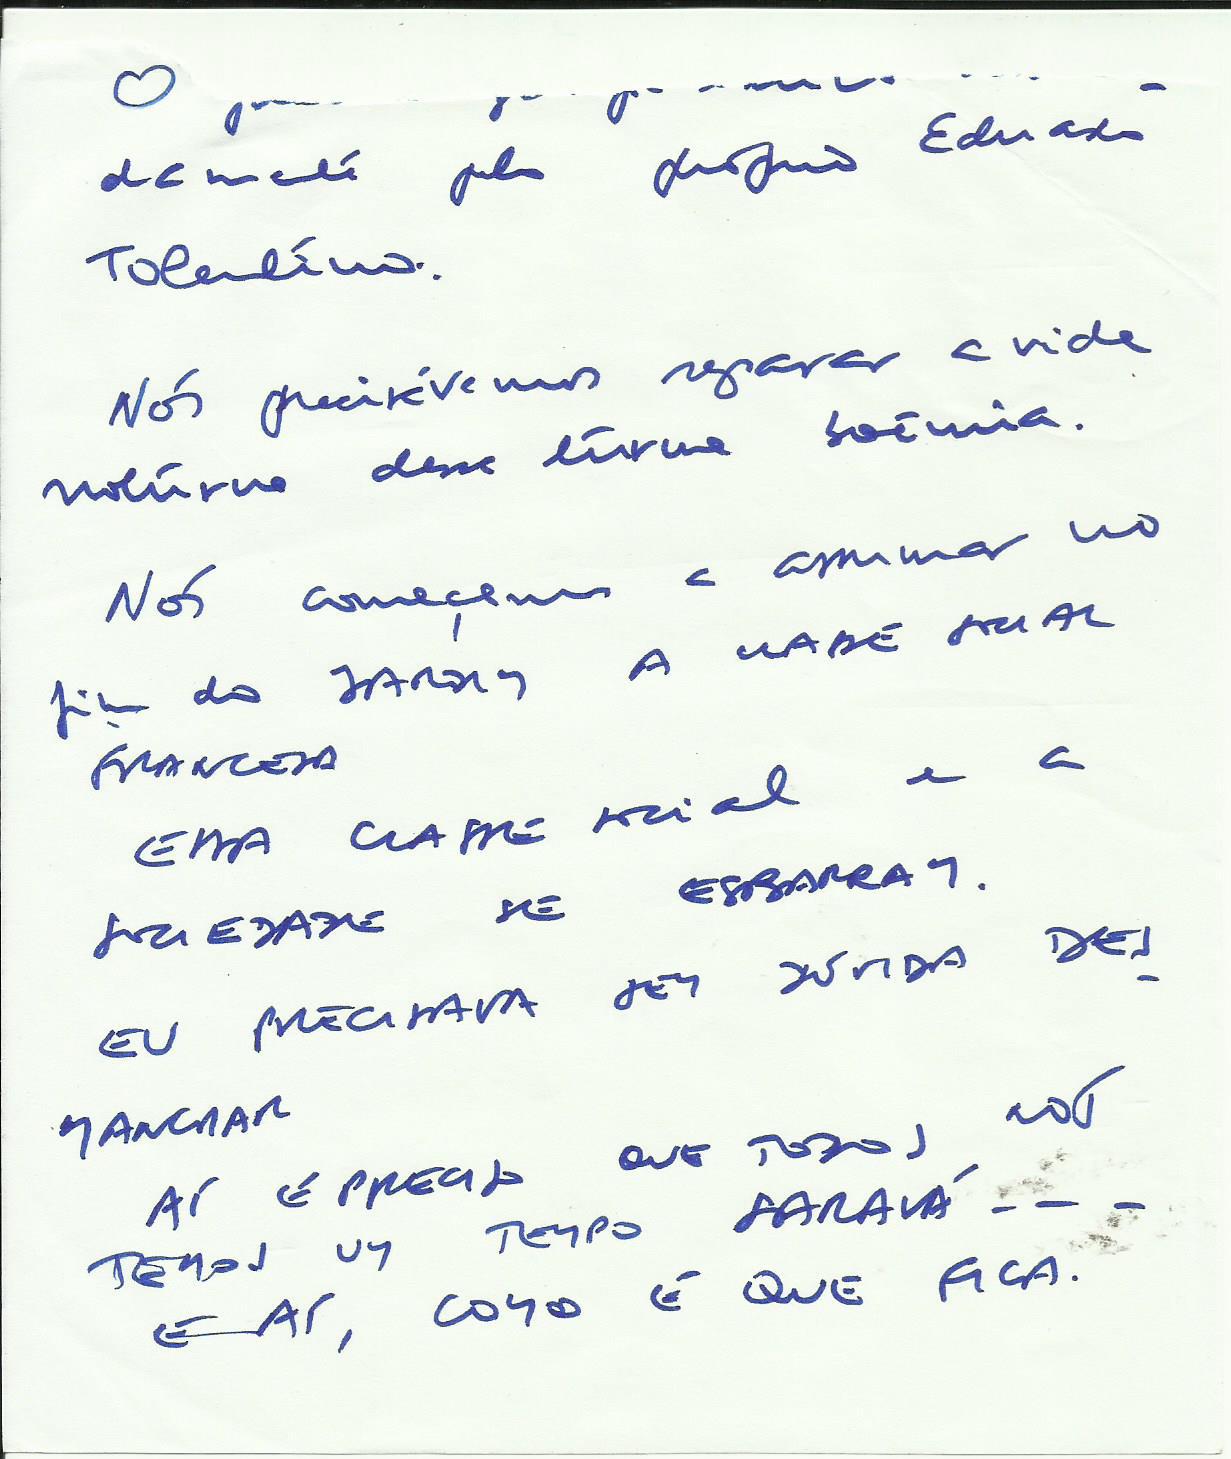 pelo próprio Eduardo
Tolentino.
Nós precisávemos separar a vida
noturna dessa turma boêmia.
Nós começamos a assumar no
fim do JARDIM A CLASSE SOCIAL
FRANCESA
ESSA CLASSE social e a
SOCIEDADE SE ESBARRAM.
EU PRECISAVA SEM DÚVIDA DES
MANCHAR
AÍ É PRECISO QUE TODOS NÓS
TEMOS UM TEMPO SARAVÁ - - -
E AÍ, COMO É QUE FICA.